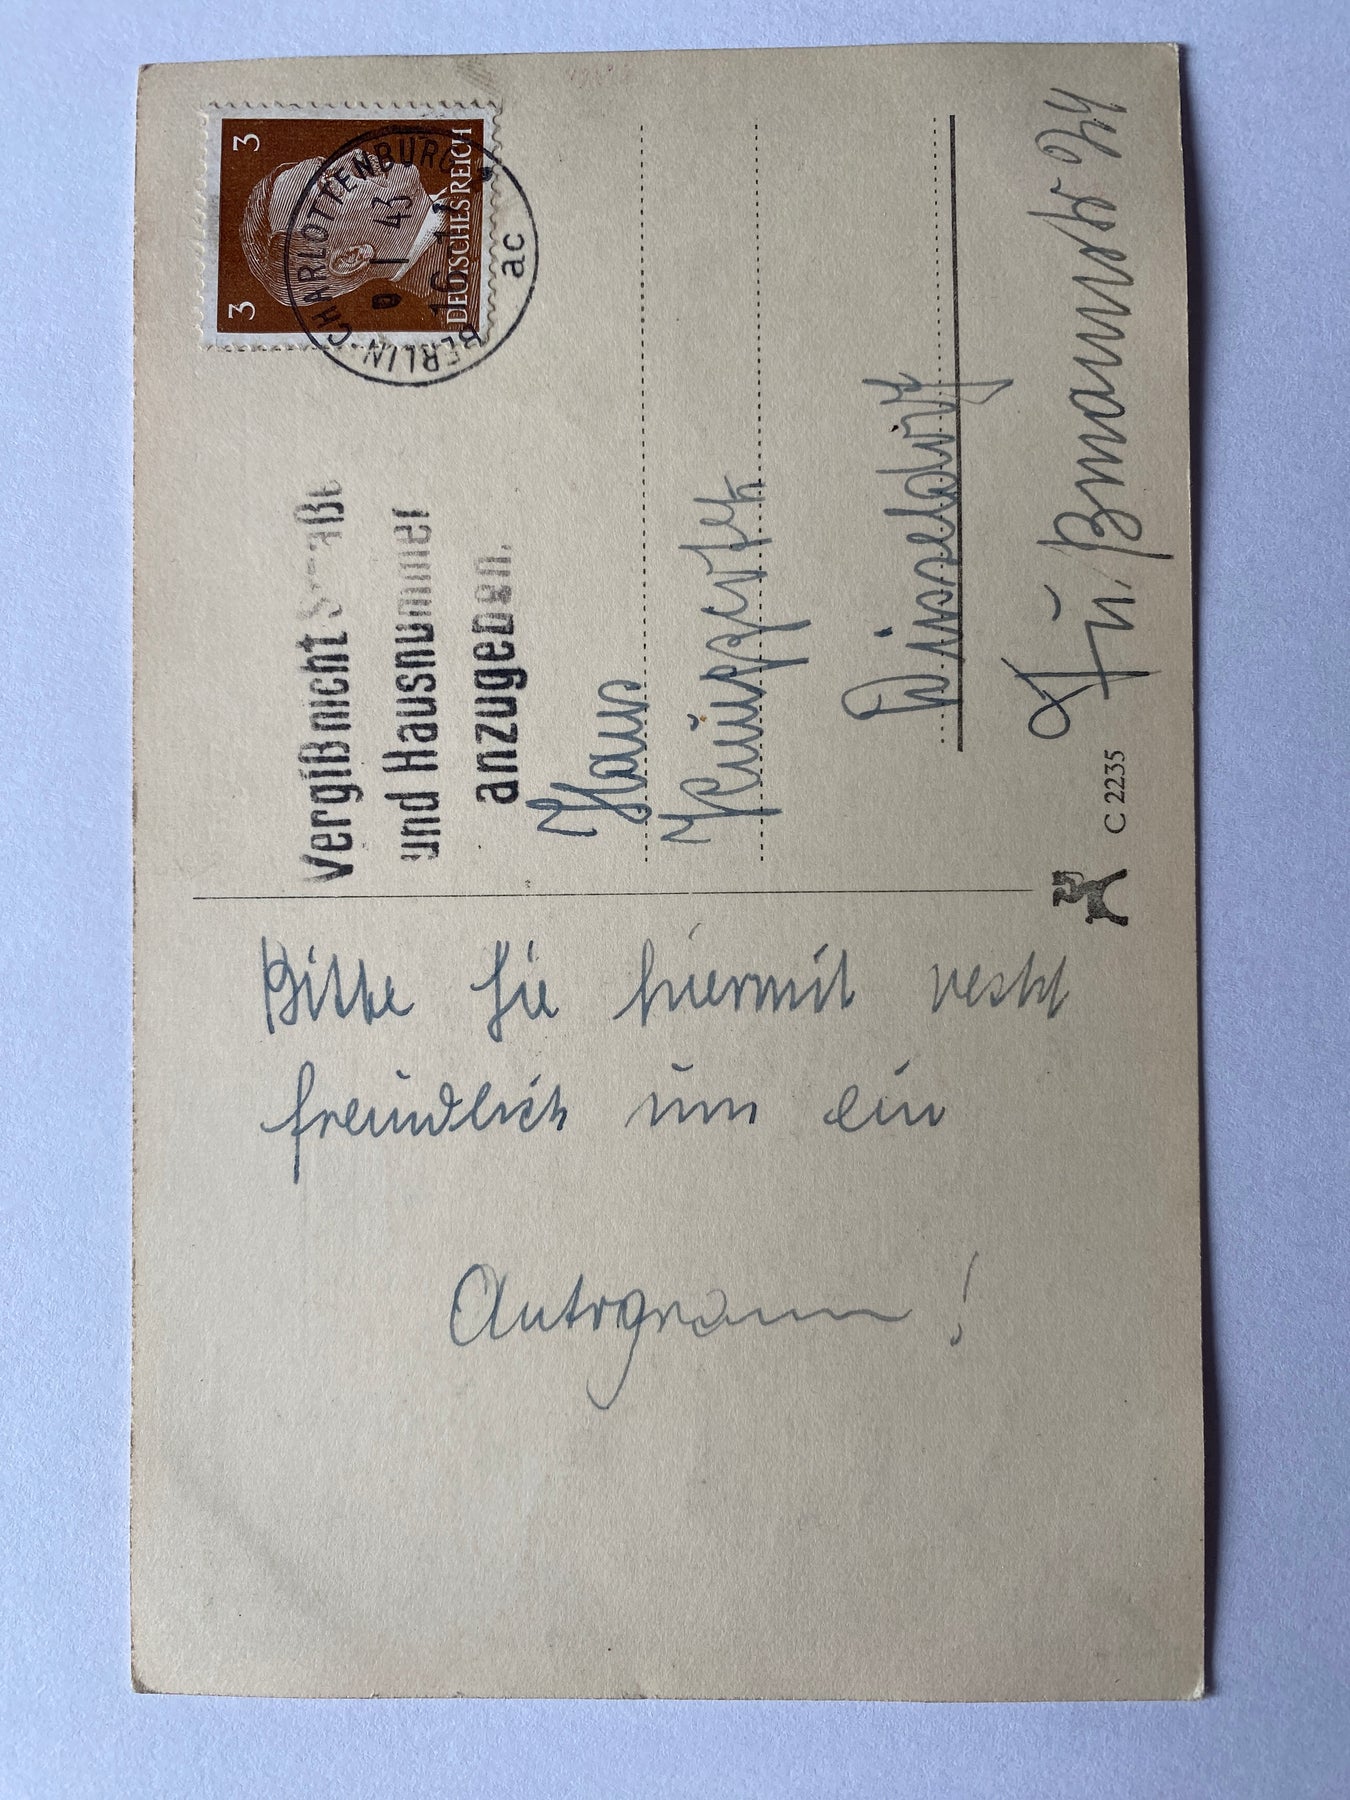 3 3
DEUTSCHES REICH
BERLIN-CHARLOTTENBURG
43
16
ac
Vergiß nicht Straße
und Hausnummer
anzugeben.
Hans
Düsseldorf
C 2235
Bitte Sie hiermit recht
freundlich um ein
Autogramm !